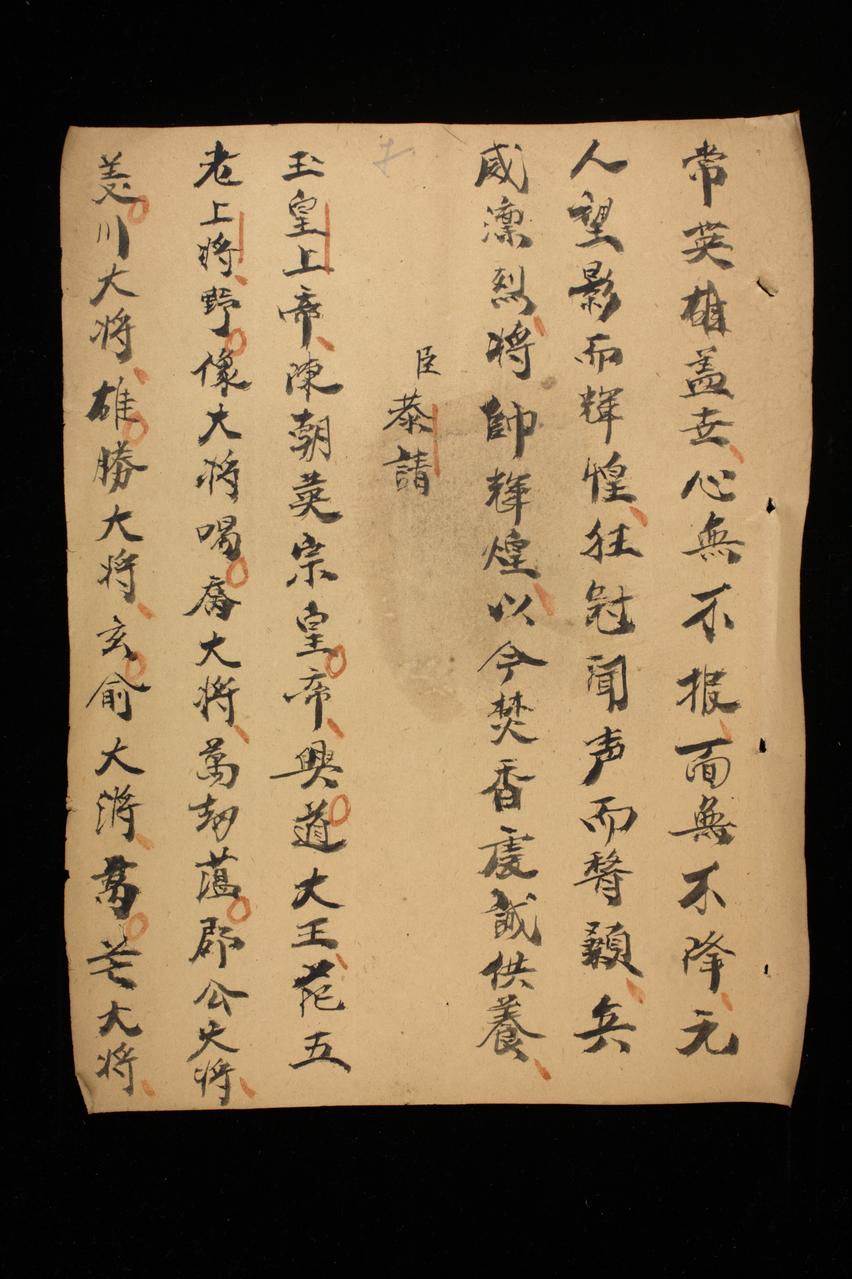 常英雄盖世心無不报面無不降元
人望影而輝惶狂冠聞声而顙兵
威凛烈将帥輝煌以今焚香虔誠供養
臣恭請
玉皇上帝陳朝英宗皇帝興道大王范五
老上将野像大将喝喬大将萬刼蕰郡公大将
美川大将雄勝大将玄俞大将萬芒大将